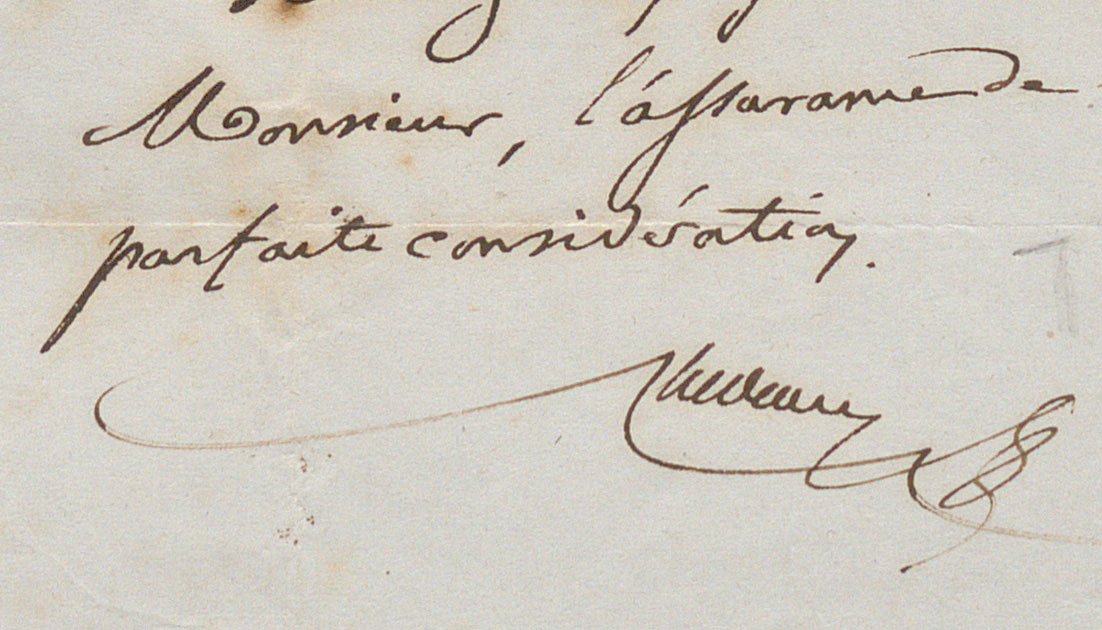 Monsieur, l'assurance de
parfaite considération.